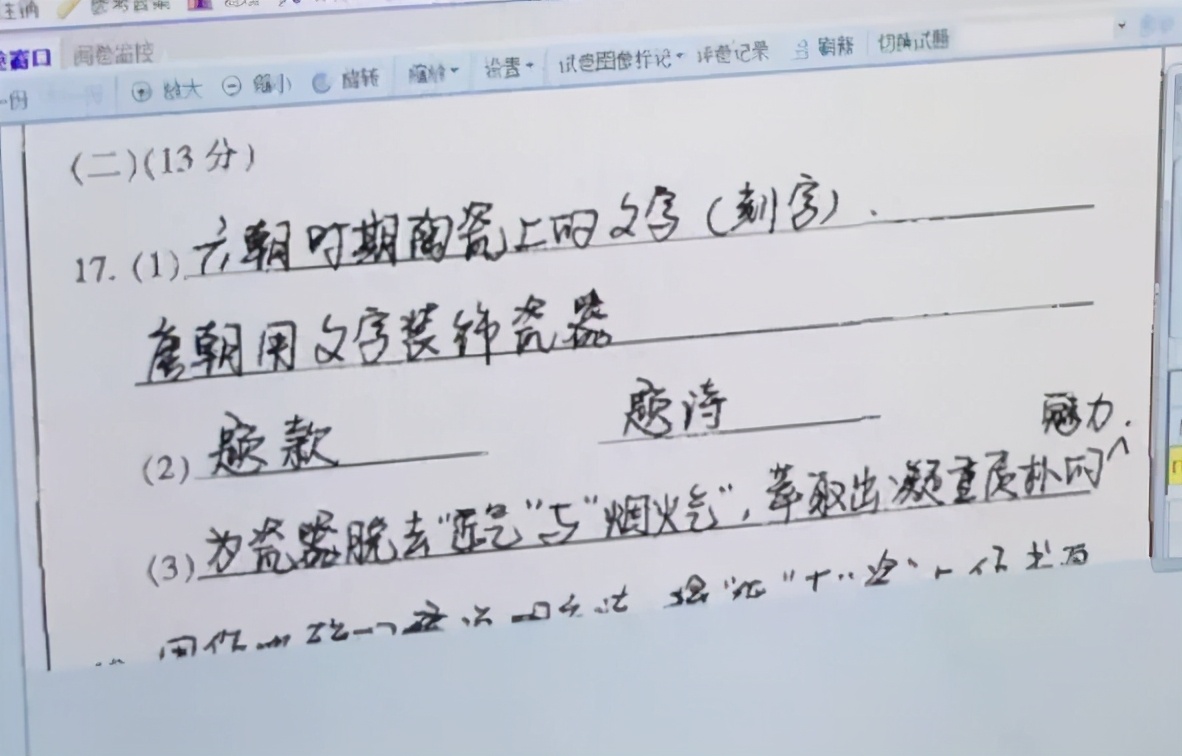 窗口 阅卷监控
放大 缩小 旋转 设置 试卷图像标记 评卷记录 刷新 切换试题
(二)(13分)
17.(1)六朝时期陶瓷上的文字(刻字).
唐朝用文字装饰瓷器
(2)题款 题诗
(3)为瓷器脱去“匠气”与“烟火气”,萃取出凝重质朴的魅力.